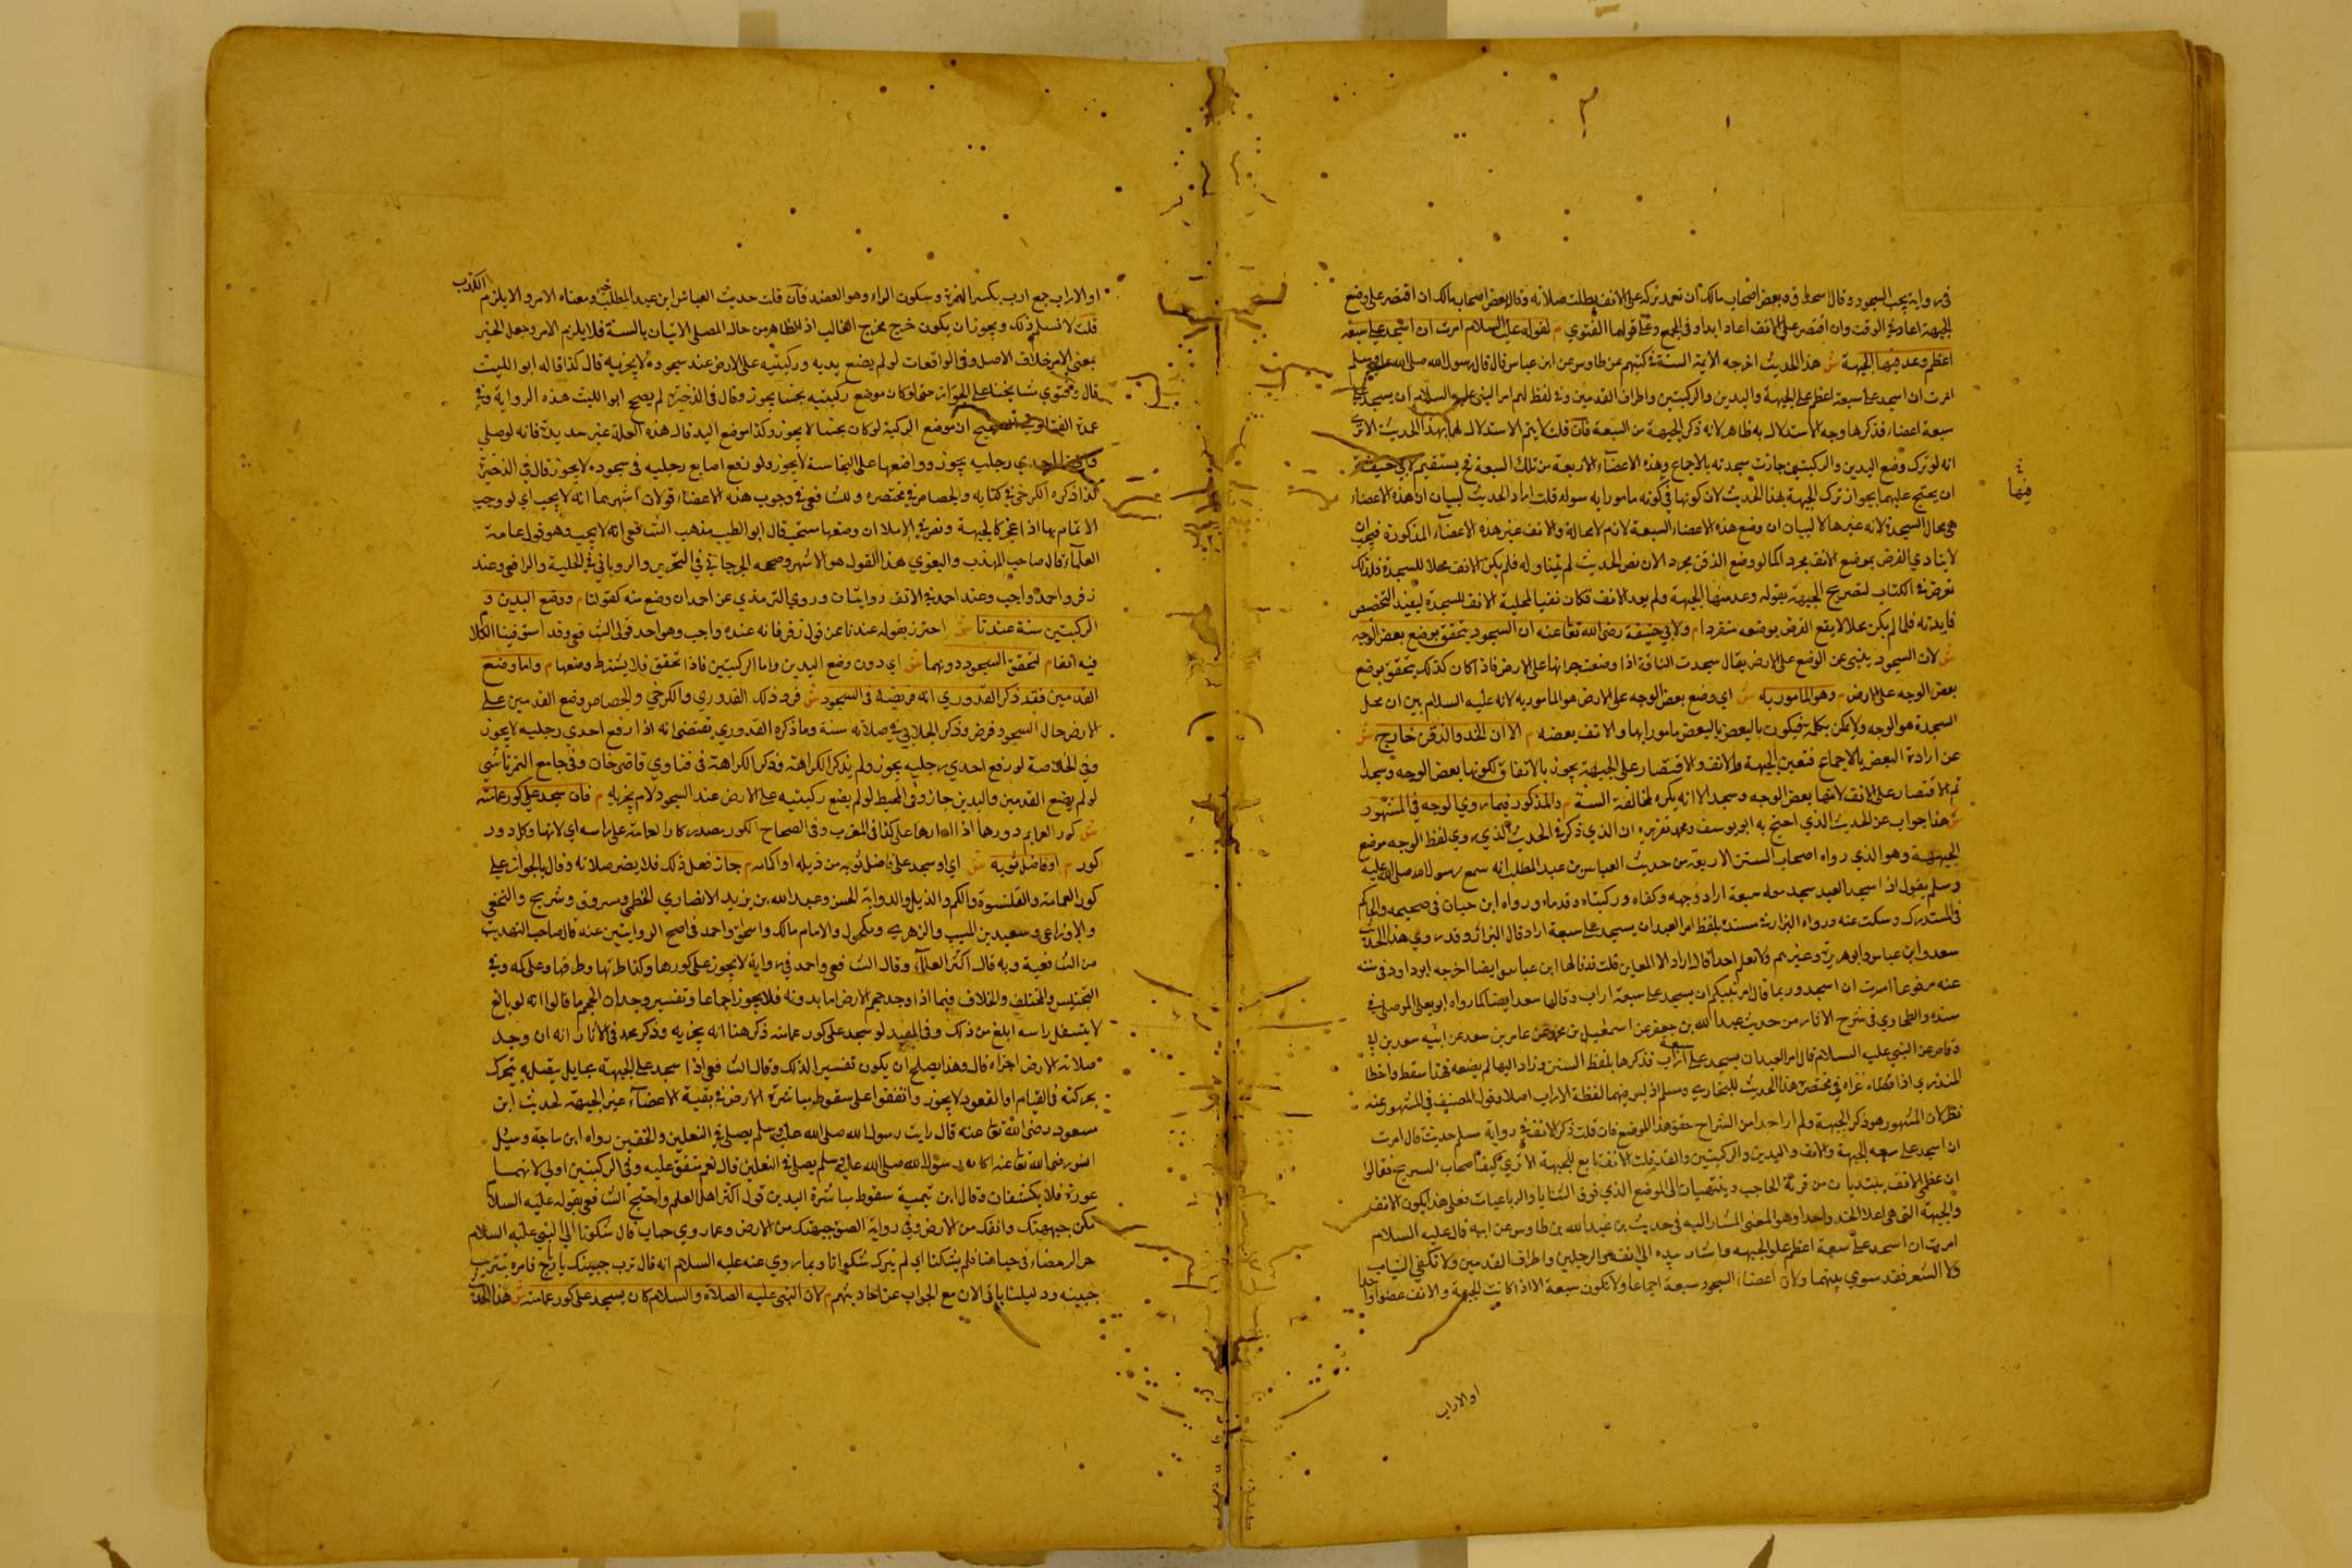 في رواية يجب السجود وقال اسحاق وبعض اصحاب مالك ان تعمد تركه على الانف بطلت صلاته وقال بعض اصحاب مالك ان اقتصر على وضع
الجبهة اعاد في الوقت وان اقتصر على الانف اعاد ابدا وفي الجمع وعلى قولهما الفتوي م لقوله عليه السلام امرت ان اسجد على سبعة
اعظم وعد منها الجبهة ش هذا الحديث اخرجه الايمة الستة في كتبهم عن طاوس عن ابن عباس قال قال رسول الله صلى الله عليه وسلم
امرت ان اسجد على سبعة اعظم على الجبهة واليدين والركبتين واطراف القدمين وفي لفظ لهم امر النبي عليه السلام ان يسجد على
سبعة اعضاء فذكرها وجه الاستدلال به ظاهر لانه ذكر الجبهة من السبعة فان قلت لا يتم الاستدلال لهما بهذا الحديث الا ترى
انه لو ترك وضع اليدين والركبتين جازت سجدته بالاجماع وهذه الاعضاء الاربعة من تلك السبعة فح يستقيم لابي حنيفة
ان يحتج عليهما بجواز ترك الجبهة بهذا الحديث لان كونها في كونه مامورا به سوا قلت ايراد الحديث لبيان ان هذه الاعضاء
هي محال السجدة لانه غيرها لا لبيان ان وضع هذه الاعضاء السبعة لازم لا محالة والانف غير هذه الاعضاء المذكورة فيجب ان
لا يتادي الفرض بموضع الانف مجردا كما لو وضع الذقن مجردا لان نص الحديث لم يتناوله فلم يكن الانف محلا للسجدة فلذلك
تعرض في الكتاب لتصريح الجبهة بقوله وعد منها الجبهة ولم يعد الانف فكان نفيا لمحلية الانف للسجدة ليفيد التخصيص
فايدته فلما لم يكن محلا لا يقع الفرض بوضعه منفردا م ولابي حنيفة رضي الله تعا عنه ان السجود يتحقق بوضع بعض الوجه
ش لان السجود ينبى عن الوضع على الارض يقال سجدت الناقة اذا وضعت جرانها على الارض فاذا كان كذلك يتحقق بوضع
بعض الوجه على الارض م وهو المامور به ش اي وضع بعض الوجه على الارض هو المأمور به لانه عليه السلام بين ان محل
السجدة هو الوجه ولا يمكن بكله فيكون بالبعض بالبعض مامورا بها والانف بعضه م الا ان الخد والذقن خارج ش
عن ارادة البعض بالاجماع فتعين الجبهة والانف والاقتصار على الجبهة يجوز بالاتفاق لكونها بعض الوجه ومسجدا
ثم الاقتصار على الانف لانها بعض الوجه ومسجد الا انه يكره لمخالفة السنة م والمذكور فيما روي الوجه في المشهور
ش هذا جواب عن الحديث الذي احتج به ابو يوسف ومحمد تقريره ان الذي ذكر في الحديث الذي روي لفظ الوجه موضع
الجبهة وهو الذي رواه اصحاب السنن الاربعة من حديث العباس بن عبد المطلب انه سمع رسول الله صلى الله عليه
وسلم يقول اذا سجد العبد سجد معه سبعة اراب وجهه وكفاه وركبتاه وقدماه ورواه ابن حبان في صحيحه والحاكم
في المستدرك وسكت عنه ورواه البزار في مسنده بلفظ امر العبد ان يسجد على سبعة اراب قال البزار وقد روي هذا الحديث
سعد وابن عباس وابو هريرة وغيرهم ولا نعلم احدا قال اراب الا العباس قلت قد قالها ابن عباس ايضا اخرجه ابو داود في سننه
عنه مرفوعا امرت ان اسجد وربما قال امر نبيكم ان يسجد على سبعة اراب وقالها سعد ايضا كما رواه ابو يعلى الموصلي في
مسنده والطحاوي في شرح الاثار من حديث عبد الله بن جعفر عن اسمعيل بن محمد عن عامر بن سعد عن ابيه سعد بن ابي
وقاص عن النبي عليه السلام قال امر العبد ان يسجد على سبعة اراب فذكرها بلفظ السنن وزاد ايها لم يضعه فقد انتقص واخطا
المنذري اذ عزاه في مختصره هذا الحديث للبخاري ومسلم اذ ليس فيهما لفظة الاراب اصلا وقول المصنف في المشهور عنه
نظر لان المشهور هو ذكر الجبهة ولم ار احدا من الشراح حقق هذا الموضع فان قلت ذكر الانف في رواية مسلم حديث قال امرت
ان اسجد على سبعة الجبهة والانف واليدين والركبتين والقدمين قلت الانف تابع للجبهة الا تري كيف اصحاب التشريح فقالوا
ان عظمي الانف يبتديان من قرنة الحاجب وينتهيان الى الموضع الذي فوق الثنايا والرباعيات فعلى هذا يكون الانف
والجبهة التي هي اعلا الخد واحدا وهو المعنى المشار اليه في حديث بن عبد الله بن طاوس عن ابيه قال عليه السلام
امرت ان اسجد على سبعة اعظم على الجبهة واشار بيده الى انفه والرجلين واطراف القدمين ولا نكفي الثياب
ولا الشعر فقد سوي بينهما ولان اعضاء السجود سبعة اجماعا ولا تكون سبعة الا اذا كانت الجبهة والانف عضوا واحدا
فيها
او الاراب
او الاراب جمع ارب بكسر الهمزة وسكون الراء وهو العضد فان قلت حديث العباس ابن عبد المطلب خبر ومعناه الامر والا يلزم الكذب
قلت لا نسلم ذلك ويجوز ان يكون خرج مخرج الغالب اذ الظاهر من حال المصلى الاتيان بالسنة فلا يلزم الامر وجعل الخبر
بمعنى الامر خلاف الاصل وفي الواقعات لو لم يضع يديه وركبتيه على الارض عند سجوده لا يجزيه قال كذا قاله ابو الليث
قال وفتوي مشايخنا على الجواز حتى لو كان موضع ركبتيه نجسا يجوز وقال في الذخيرة لم يصحح ابو الليث هذه الرواية وفي
عمدة الفتاوي الصحيح ان موضع الركبة لو كان نجسا لا يجوز وكذا موضع اليد قال هذه العلة غير جديدة فانه لو صلى
رافعا احدي رجليه يجوز وواضعها على النجاسة لا يجوز ولو رفع اصابع رجليه في سجوده لا يجوز قال في الذخيرة
كذا ذكره الكرخي في كتابه والجصاص في مختصره وللشافعي في وجوب هذه الاعضاء قولان اشهرهما انه لا يجب اي لو وجب
الاتمام بها اذا عجز كالجبهة ونص في الاملا ان وضعها مستحب قال ابو الطيب مذهب الشافعي انه لا يجب وهو قول عامة
العلماء قال صاحب المهذب والبغوي هذا القول هو الاشهر وصححه الجرجاني في التحرير والروياني في الحلية والرافعي وعند
زفر واحمد واجب وعند احمد في الانف روايتان وروي الترمذي عن احمد ان وضع منه كقولنا م ووضع اليدين و
الركبتين سنة عندنا ش احترز بقوله عندنا عن قول زفر فانه عنده واجب وهو احد قولى الشافعي وقد استوفينا الكلا
فيه انفا م لتحقق السجود دونهما ش اي دون وضع اليدين واما الركبتين فاذا تحقق فلا يشترط وضعها م واما وضع
القدمين فقد ذكر القدوري انه فريضة في السجود ش فرذ ذلك القدوري والكرخي والجصاص وضع القدمين على
الارض حال السجود فرض وذكر الجلابي في صلاته سنة وما ذكره القدوري يقتضى انه اذا رفع احدي رجليه لا يجوز
وفي الخلاصة لو رفع احدي رجليه يجوز ولم يذكر الكراهة وذكر الكراهة في فتاوي قاضى خان وفي جامع التمرتاشي
لو لم يضع القدمين واليدين جاز وفي المحيط لو لم يضع ركبتيه على الارض عند السجود لا م يجزيه م فان سجد على كور عمامته
ش كور العمامة دورها اذا ادارها على كذا في المغرب وفي الصحاح الكور مصدر كار العمامة على راسه اي لاثها وكل دور
كور م او فاضل ثوبه ش اي او سجد على فاضل ثوبه من ذيله او اكمامه م جاز فعل ذلك فلا يضر صلاته وقال بالجواز على
كور العمامة والقلنسوة والكم والذيل والدوابة الحسن وعبد الله بن يزيد الانصاري الخطمي ومسروق وشريح والنخعي
والاوزاعى وسعيد بن المسيب والزهري ومكحول والامام مالك واسحق واحمد في اصح الروايتين عنه قال صاحب التهذيب
من الشافعية وبه قال اكثر العلماء وقال الشافعي واحمد في رواية لا يجوز على كورها وكذا طرتها وطرفها وعلى كمه وفي
التجنيس والمختلف والخلاف فيما اذا وجد حجم الارض اما بدونه فلا يجوز اجماعا وتفسير وجدان الحجم ما قالوا انه لو بالغ
لا يتسفل راسه ابلغ من ذلك وفي المفيد لو سجد على كور عمامته ذكر هنا انه يجزيه وذكر محمد في الاثار انه ان وجد
صلابة الارض اجزاه قال وهذا يصلح ان يكون تفسيرا لذلك وقال الشافعي اذا سجد على الجبهة بحايل يتصل به يتحرك
بحركته في القيام او القعود لا يجوز واتفقوا على سقوط مباشرة الارض في بقية الاعضاء غير الجبهة لحديث ابن
مسعود رضى الله تعا عنه قال رايت رسول الله صلى الله عليه وسلم يصلي في النعلين والخفين رواه ابن ماجة وسيل
انس رضى الله تعا عنه اكان رسول الله صلى الله عليه وسلم يصلى في النعلين قال نعم متفق عليه وفي الركبتين اولى لانهما
عورة فلا يكشفان وقال ابن تيمية سقوط مباشرة اليدين قول اكثر اهل العلم واحتج الشافعي بقوله عليه السلام
مكن جبهتك وانفك من الارض وفي رواية الصق جبهتك من الارض وعما روي خباب قال شكونا الى النبي عليه السلام
حر الرمضاء في جباهنا فلم يشكنا اي لم يترك شكوانا وبما روي عنه عليه السلام انه قال ترب جبينك يا رباح فامره بتتريب
جبينه ودليلنا ياتى الان مع الجواب عن احاديثهم م لان النبى عليه الصلاة والسلام كان يسجد على كور عمامته ش هذا الحديث